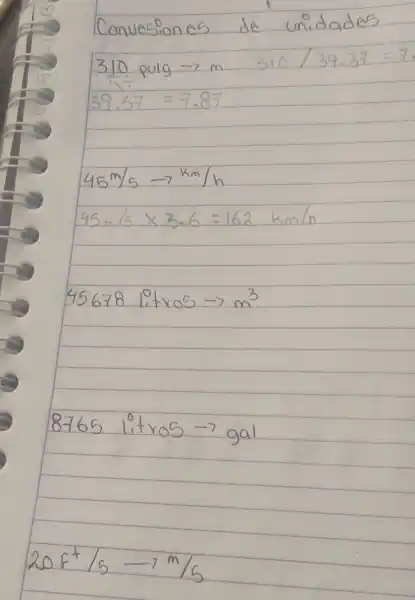 Convesiones de unidades
310 pulg → m 310 / 39.37 = 7.
39.37 = 7.87
45 m/s → km/h
45 m/s x 3.6 = 162 km/h
45678 litros → m³
8765 litros → gal
20 Ft/s → m/s